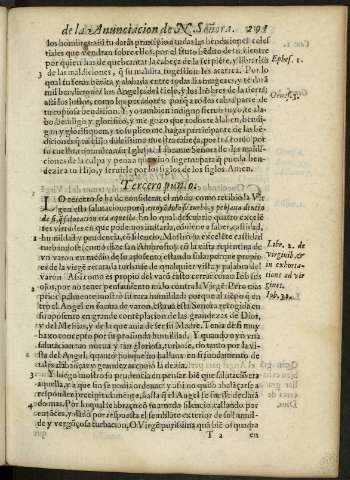 de la Anunciacion de N. Señora. 291
los hombres: tu darás principio a todas las bendiciones celes
tiales que vendran sobre ellos, por el fruto bēdito de tu vientre
por quien has de quebrantar la cabeça de la serpiēte, y librarlos
3 de las maldiciones, q̃ su maldita sugestion les acarreo. Por lo
qual tu seras bendita y alabada entre todas las mugeres, y te darā
mil bendiciones los Angeles del cielo, y los hōbres de la tierra,
assi los justos, como los pecadores: porq̃ a todos cabrà parte de
tu copiosa bendicion. Y yo tambien indigno sieruo tuyo, te ala
bo bendigo y glorifico, y me gozo que todos te alaben, bendi
gan y glorifiquen, y te suplico me hagas participante de las bē
diciones que
ciones de la culpa y pena a que viuo sugeto para q̃ pueda ben
dezir a tu Hijo, y seruirle por los siglos de los siglos Amen.
Tercero punto.
LO tercero se ha de considerar, el modo como recibio la Vir
gen esta salutacion: porq̃ oyendola se turbò, y pensaua dentro
de si, q̃ salutacion era aquella. En lo qual descubrio quatro excelē
tes virtudes en que podemos imitarla, cōuiene a saber, castidad,
humildad, y prudencia, cō silencio. Mostro su excelēte castidad
turbandose (como dize san Ambrosio) cō la vista repentina de
vn varon en medio de su aposento estando sola: porque propio
de la virgē recatada turbarse de qualquier vista, y palabra del
varon. Assi como es propio del varō casto cerrar como Iob los
ojos, por no tener pensamiento malo contra la Virgē. Pero mas
principalmente mostro su rara humildad: porque al tiēpo q̃ en
trò el Angel en forma de varon, estaua esta Señora recogida en
su aposento en grande contēplacion de las grandezas de Dios,
y del Messias, y de la que auia de ser su Madre. Tenia de si muy
baxo concepto por su profunda humildad. Y quando oyò vna
salutacion tan nueua y tan gloriosa, turbose, no tanto por la vis
ta del Angel, quanto porque no hallaua en si fundamento de
tales alabanças y grandezas como la dezia.
3 Y luego mostro su prudencia en pensar biē que salutaciō era
aquella, y a que fin se podia ordenar: y assi no quiso abalāçarse a
responder precipitadamente, hasta q̃ el Angel se fuesse declarā
4 do mas. Por lo qual se abraçò cō su amado silencio, callando por
entōces, y dādo por respuesta el semblāte exterior de su humil-
de y vergōçosa turbacion. O Virgē purissima que biē os quadra
T 2 en
Ephes. 1.
Libr. 2. de
virginib. &
in exhorta-
tione ad vir
gines.
Iob. 31.